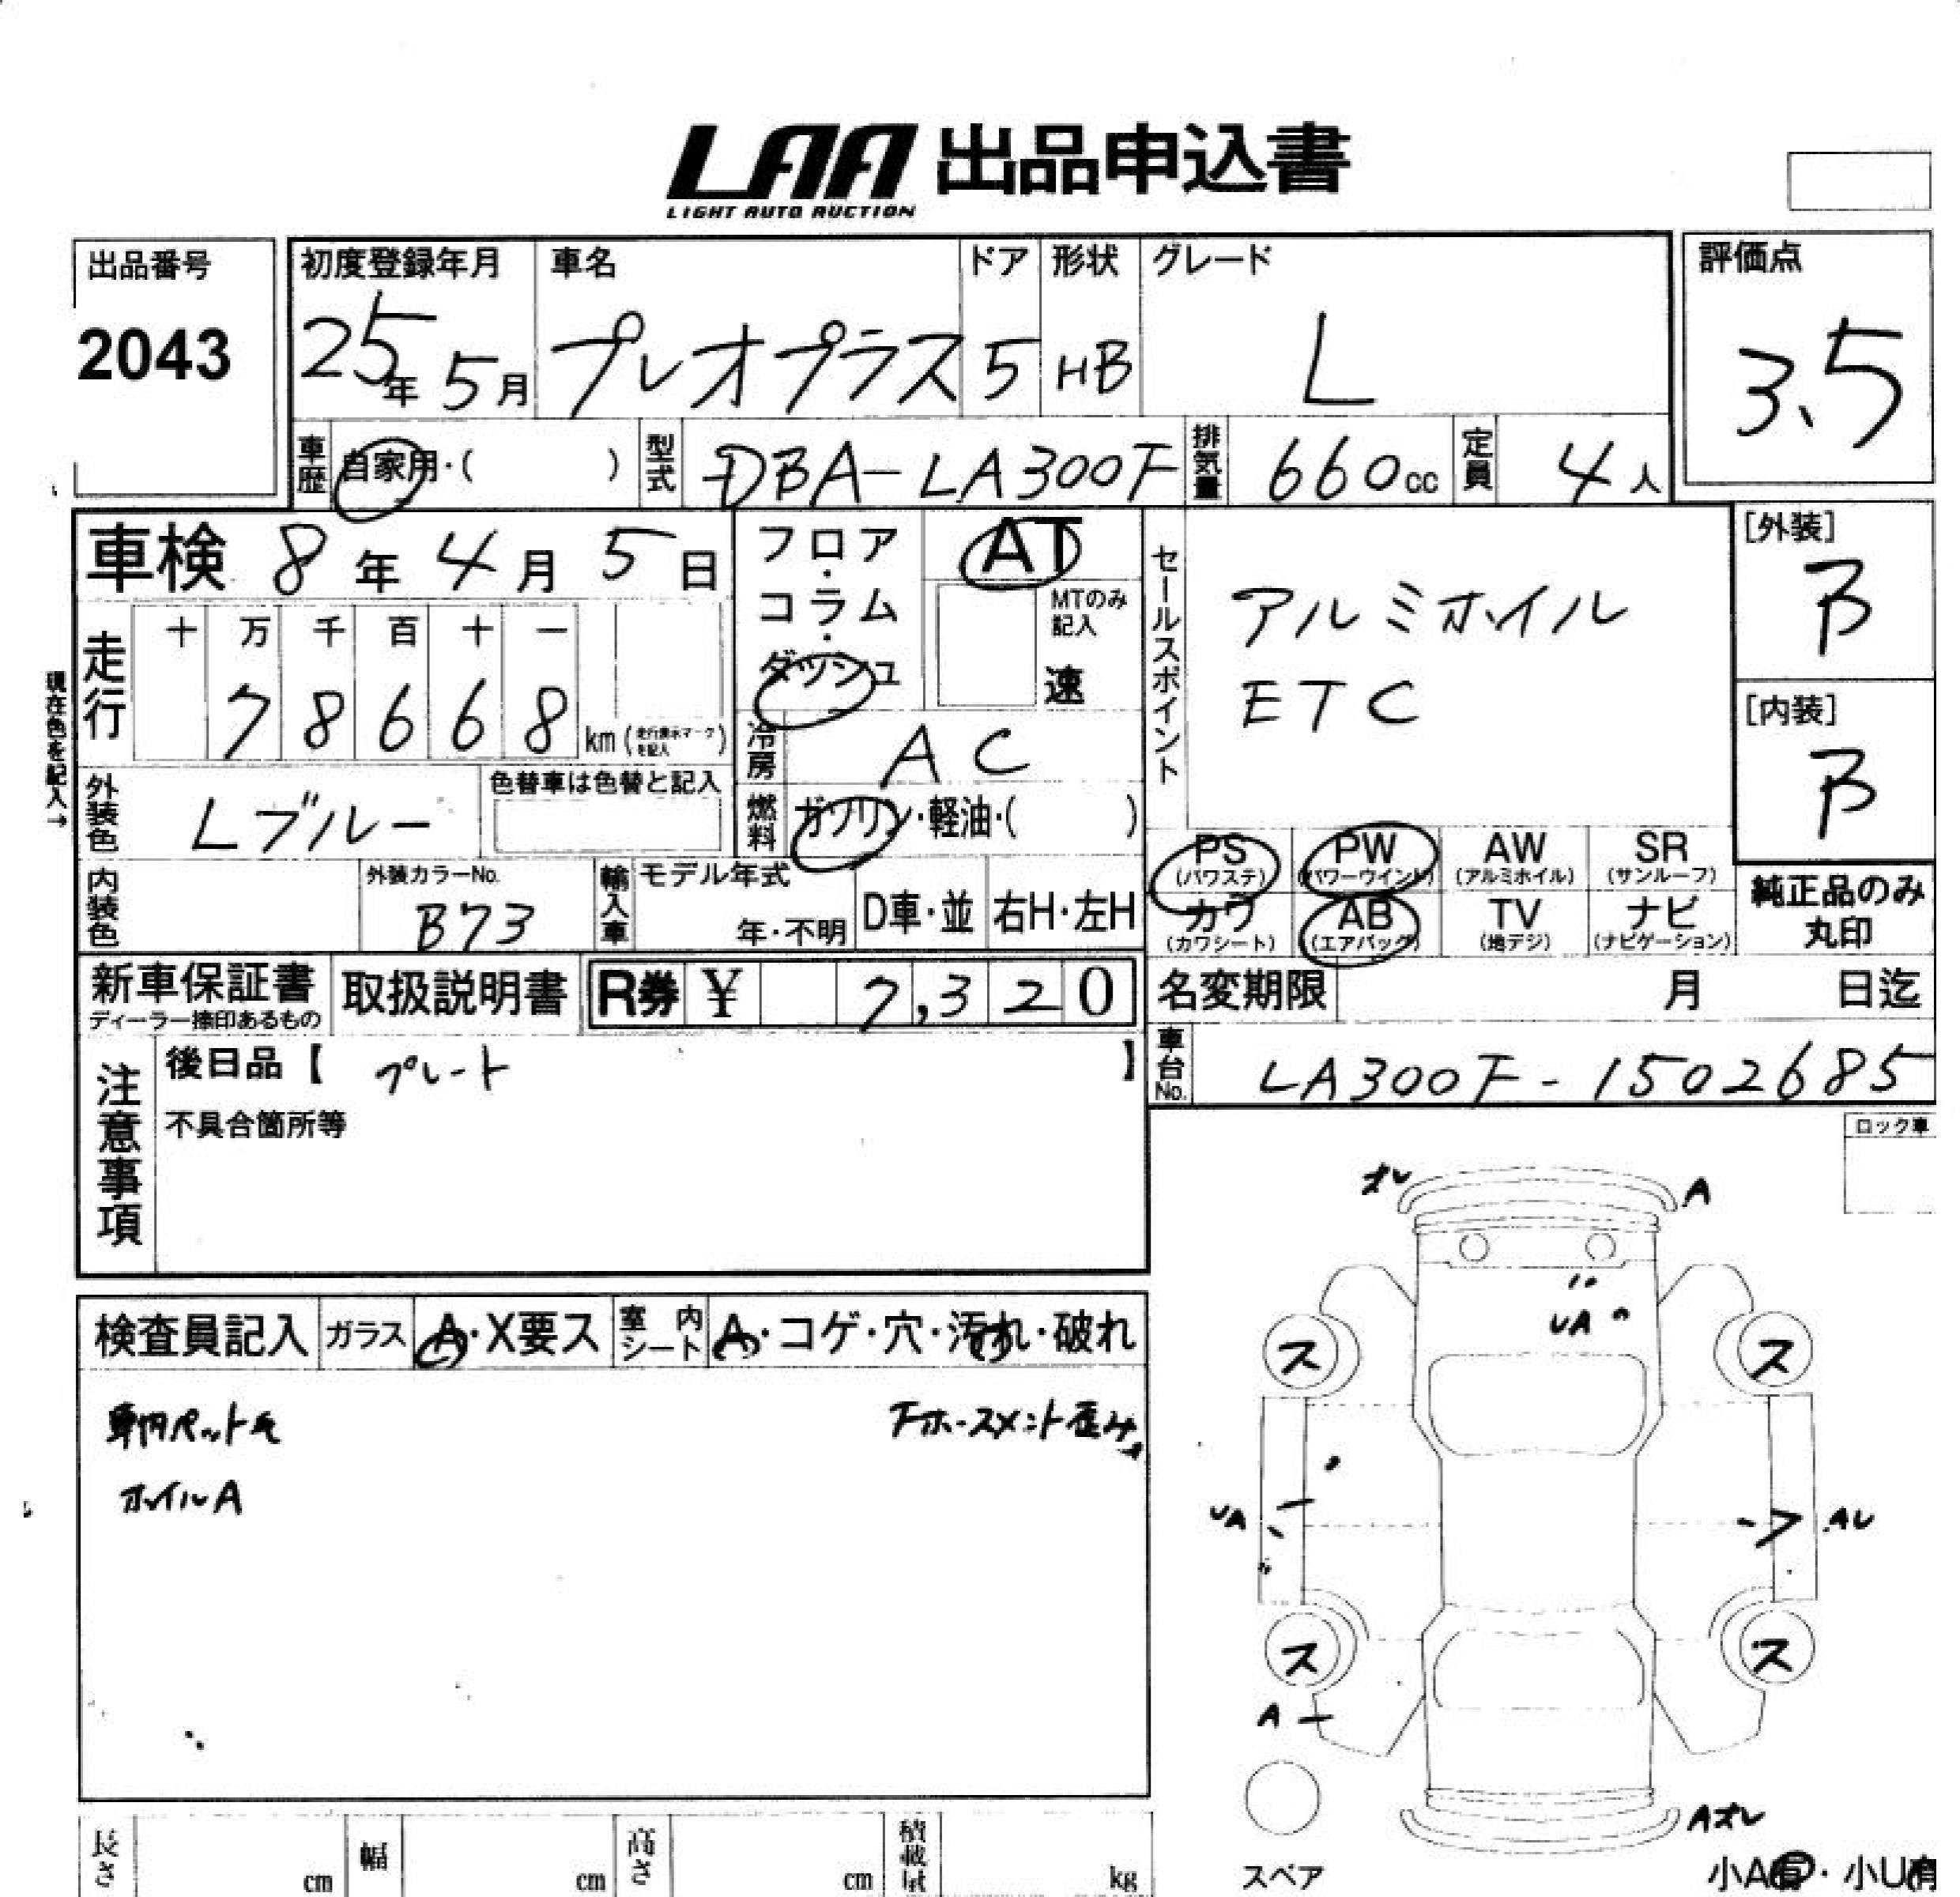 LAA 出品申込書
LIGHT AUTO AUCTION
出品番号 2043
初度登録年月 25年 5月
車名 プレオプラス
ドア 5
形状 HB
グレード L
評価点 3.5
車歴 自家用・( )
型式 DBA-LA300F
排気量 660cc
定員 4人
車検 8年 4月 5日
フロア・コラム・ダッシュ
AT
MTのみ記入
速
セールスポイント
アルミホイル
ETC
[外装] B
[内装] B
現在色を記入→
走行 十 万 千 百 十 一
78668 km (走行表示マークを記入)
冷房 AC
燃料 ガソリン・軽油・( )
外装色 Lブルー
色替車は色替と記入
内装色
外装カラーNo. B73
輸入車 モデル年式 年・不明
D車・並 右H・左H
PS (パワステ) PW (パワーウインド) AW (アルミホイル) SR (サンルーフ)
カワ (カワシート) AB (エアバッグ) TV (地デジ) ナビ (ナビゲーション)
純正品のみ丸印
新車保証書 ディーラー捺印あるもの
取扱説明書
R券 ¥ 7,320
名変期限 月 日迄
車台No. LA300F-1502685
注意事項
後日品【 プレート 】
不具合箇所等
ロック車
検査員記入 ガラス A・X要ス 室内シート A・コゲ・穴・汚れ・破れ
車内ペット毛
ホイルA
ホースメント歪み
ズレ A
UA
ス ス
UA AU
ス ス
A
Aズレ
スペア
小A有・小U有
長さ cm 幅 cm 高さ cm 積載量 kg